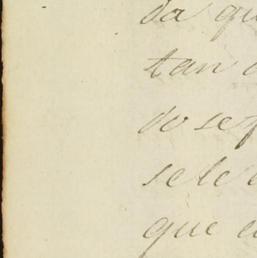 da qu
tan
do se
sele
que